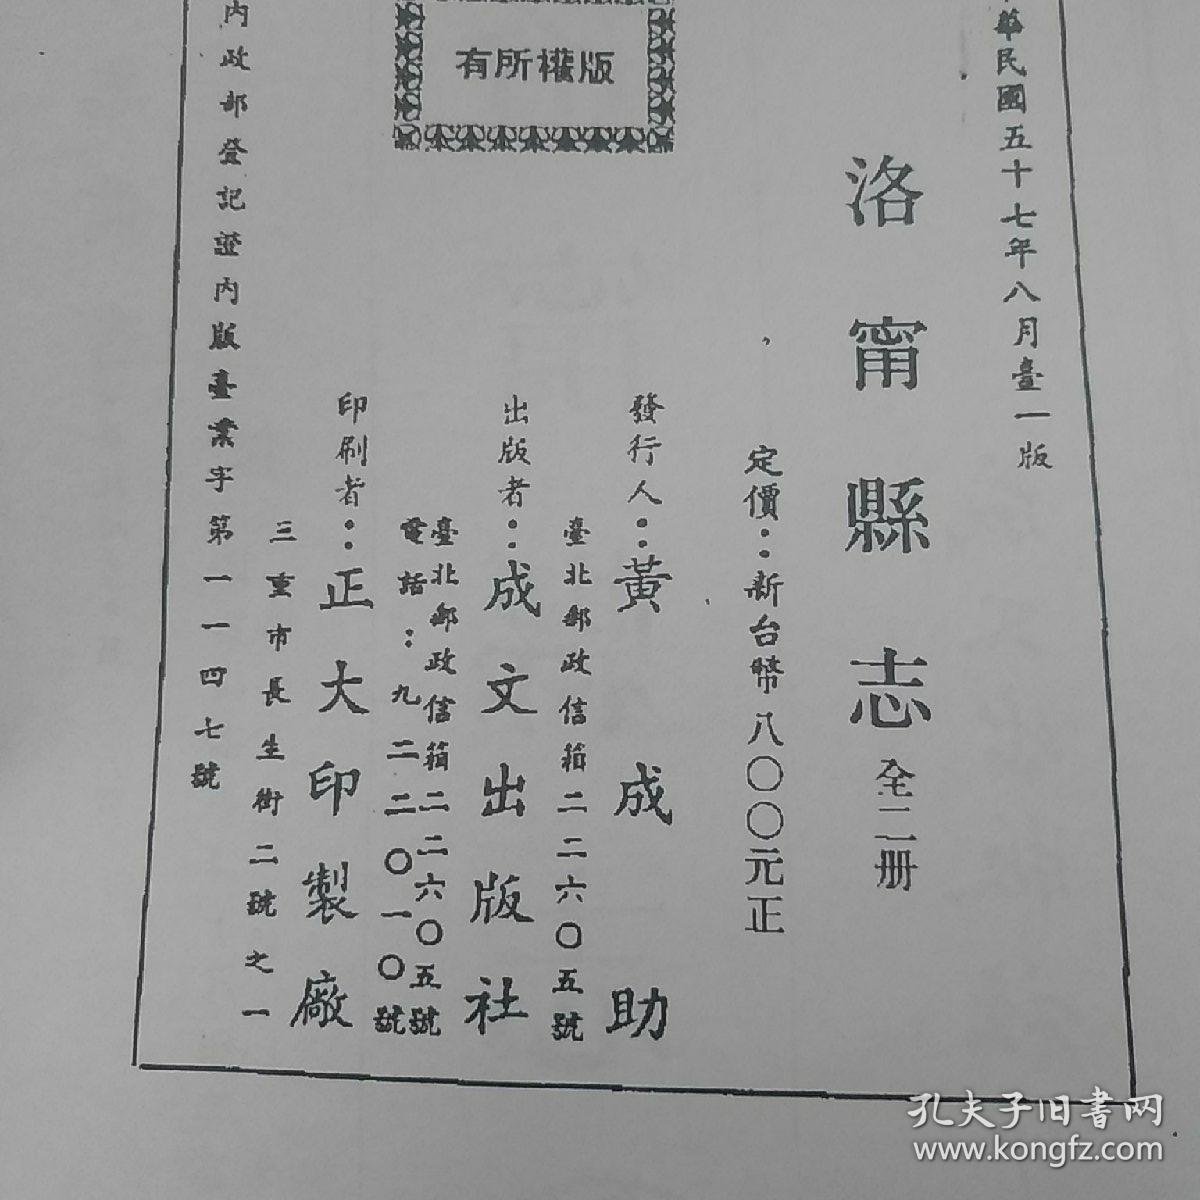 華民國五十七年八月臺一版
洛甯縣志 全二册
定價：新台幣八〇〇元正
發行人：黃成助
臺北郵政信箱二二六〇五號
出版者：成文出版社
臺北郵政信箱二二六〇五號
電話：九二二〇一〇號
印刷者：正大印製廠
三重市長生街二號之一
內政部登記證內版臺業字第一一四七號
有所權版
孔夫子旧书网
www.kongfz.com